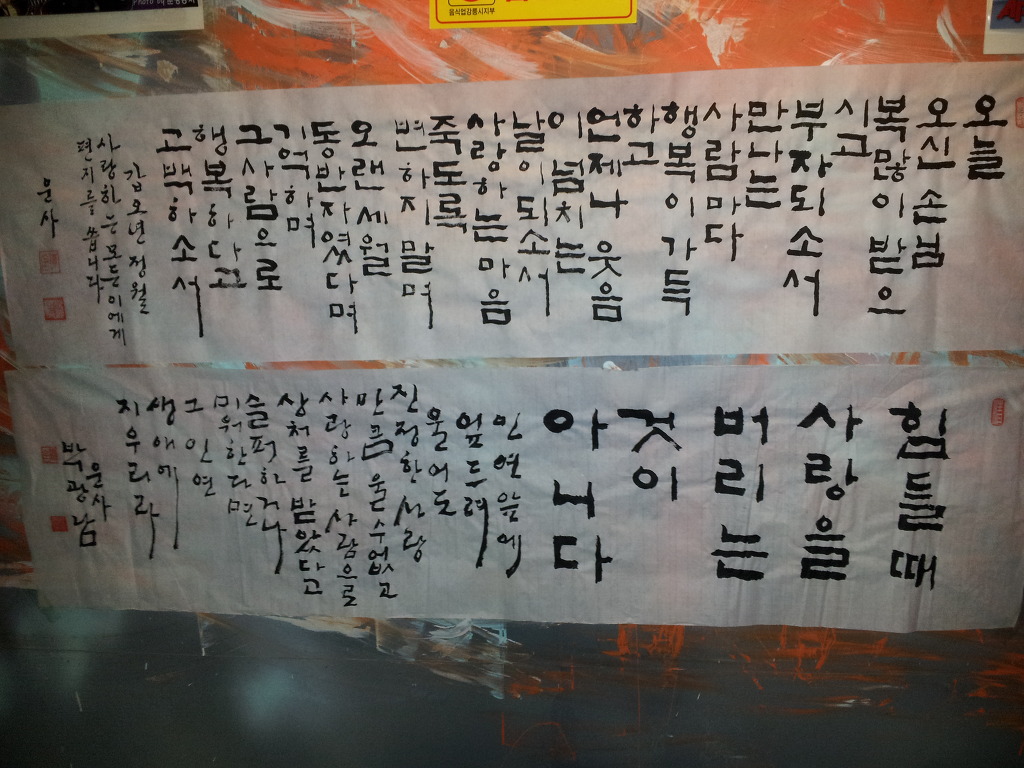 음식업강릉시지부
오늘
오신 손님
복많이 받으
시고
부자되소서
만나는
사람마다
행복이 가득
하고
언제나 웃음
이 넘치는
날이 되소서
사랑하는 마음
죽도록
변하지 말며
오랜 세월
동반자였다며
기억하며
그 사람으로
행복하다고
고백하소서
갑오년 정월
사랑하는 모든이에게
편지를 씁니다
운사
힘들때
사랑을
버리는
것이
아니다
인연앞에
엎드려
울어도
진정한 사랑
만큼 울수없고
사랑하는 사람으로
상처를 받았다고
슬퍼하거나
미워한다면
그 인연
생애에
지우리라
운사
박광남